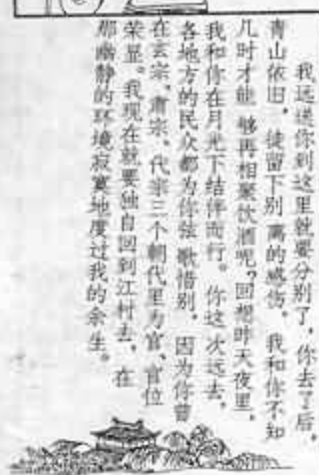 我远送你到这里就要分别了，你去了后，
青山依旧，徒留下别离的感伤。我和你不知
几时才能够再相聚饮酒呢？回想昨天夜里，
我和你在月光下结伴而行。你这次远去，
各地方的民众都为你弦歌惜别，因为你曾
在玄宗、肃宗、代宗三个朝代里为官，官位
荣显。我现在就要独自回到江村去，在
那幽静的环境寂寞地度过我的余生。